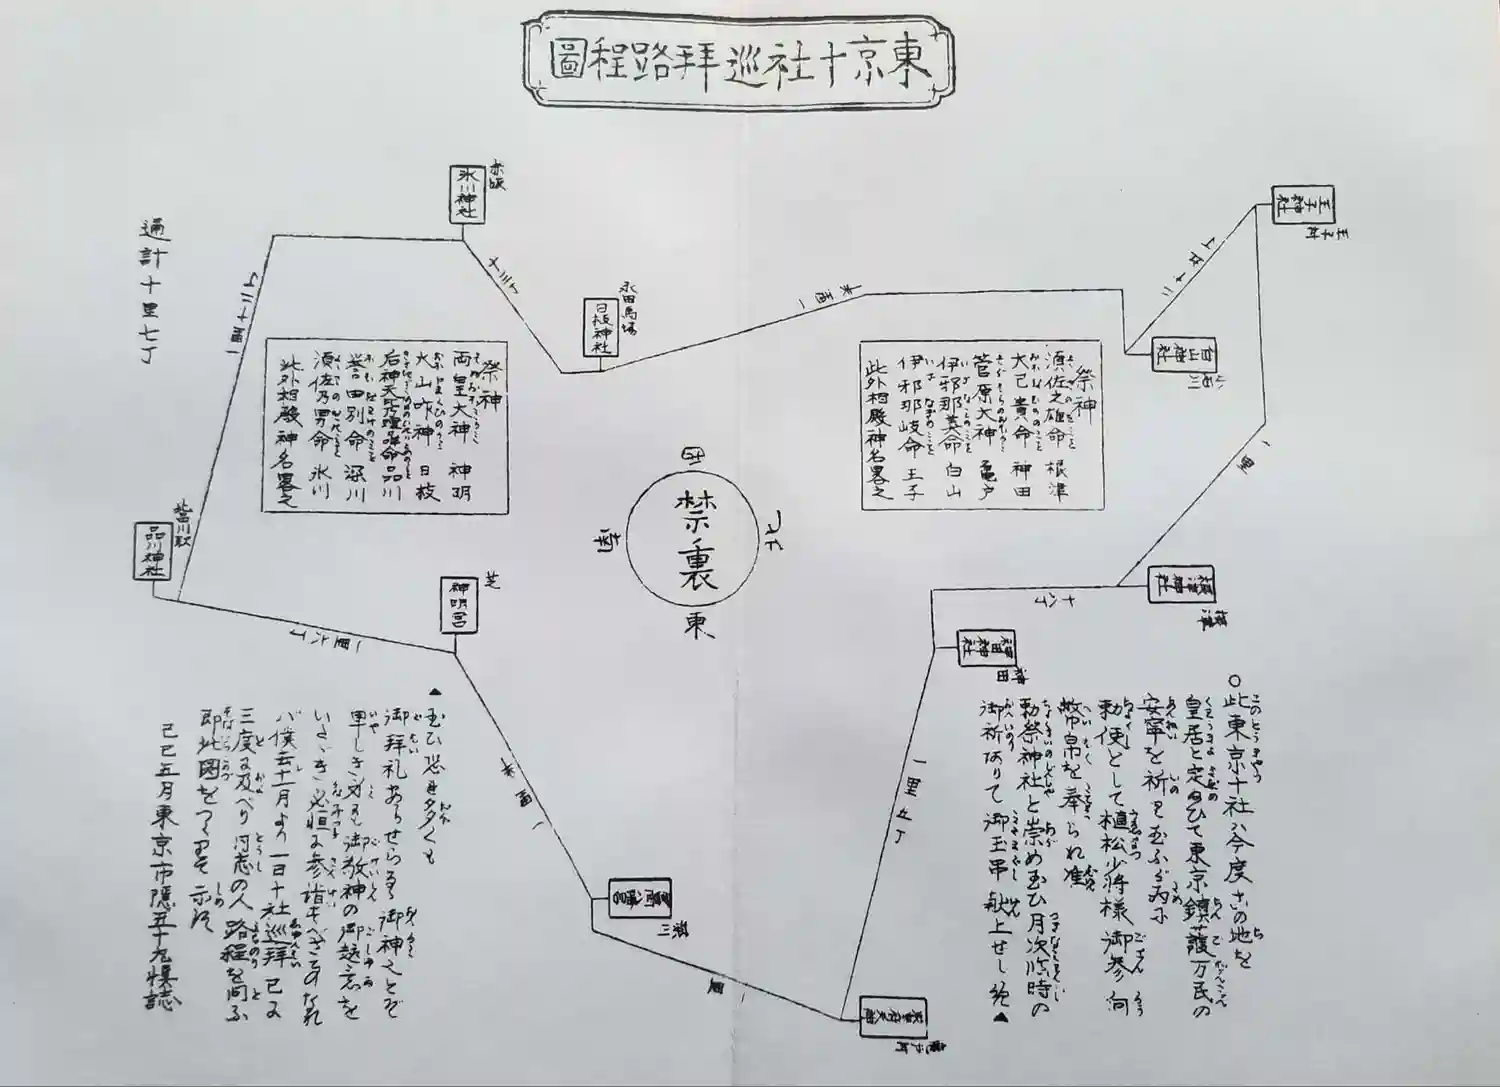 東京十社巡拜路程圖
王子神社
王子村
白山神社
根津神社
根津
神田神社
神田
亀戸町
八幡宮
深川
神明宮
芝
品川神社
品川駅
氷川神社
赤坂
日枝神社
永田馬場
一里
十六丁
一里
一里
通計十里七丁
祭神
須佐之雄命 根津
大己貴命 神田
菅原大神 亀戸
伊邪那美命 白山
伊邪那岐命 王子
此外相殿神名畧之
祭神
両皇大神 神明
大山咋神 日枝
品川
誉田別命 深川
須佐乃男命 氷川
此外相殿神名畧之
西
北
南
東
禁裏
○此東京十社ハ今度此の地を
皇居と定め玉ひて東京鎮護万民の
安寧を祈り玉ふが為に
勅使として植松少将様御参向
幣帛を奉られ准
勅祭神社と崇め玉ひ月次臨時の
御祈ありて御玉串献上せし給▲
▲
玉ひ恐も多くも
御拜礼あらせらるる御神々とぞ
卑しき身も御敬神の御趣意を
いたゞき必恒に参詣すべきものなれ
バ僕去十一月より一日十社巡拜已に
三度に及べり同志の人路程を問ふ
即此圖をつくりて示す
己巳五月東京市隠